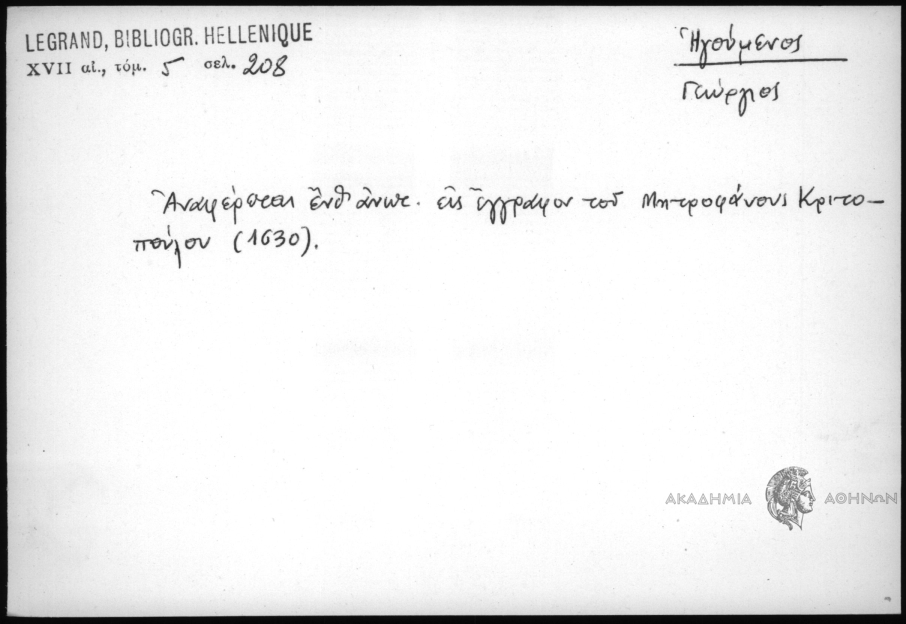 LEGRAND, BIBLIOGR. HELLENIQUE
XVII αἰ., τόμ. 5 σελ. 208
Ἡγούμενος
Γεώργιος
Ἀναφέρεται ἔνθ' ἀνωτ. εἰς ἔγγραφον τοῦ Μητροφάνους Κριτο-
πούλου (1630).
ΑΚΑΔΗΜΙΑ ΑΘΗΝΩΝ